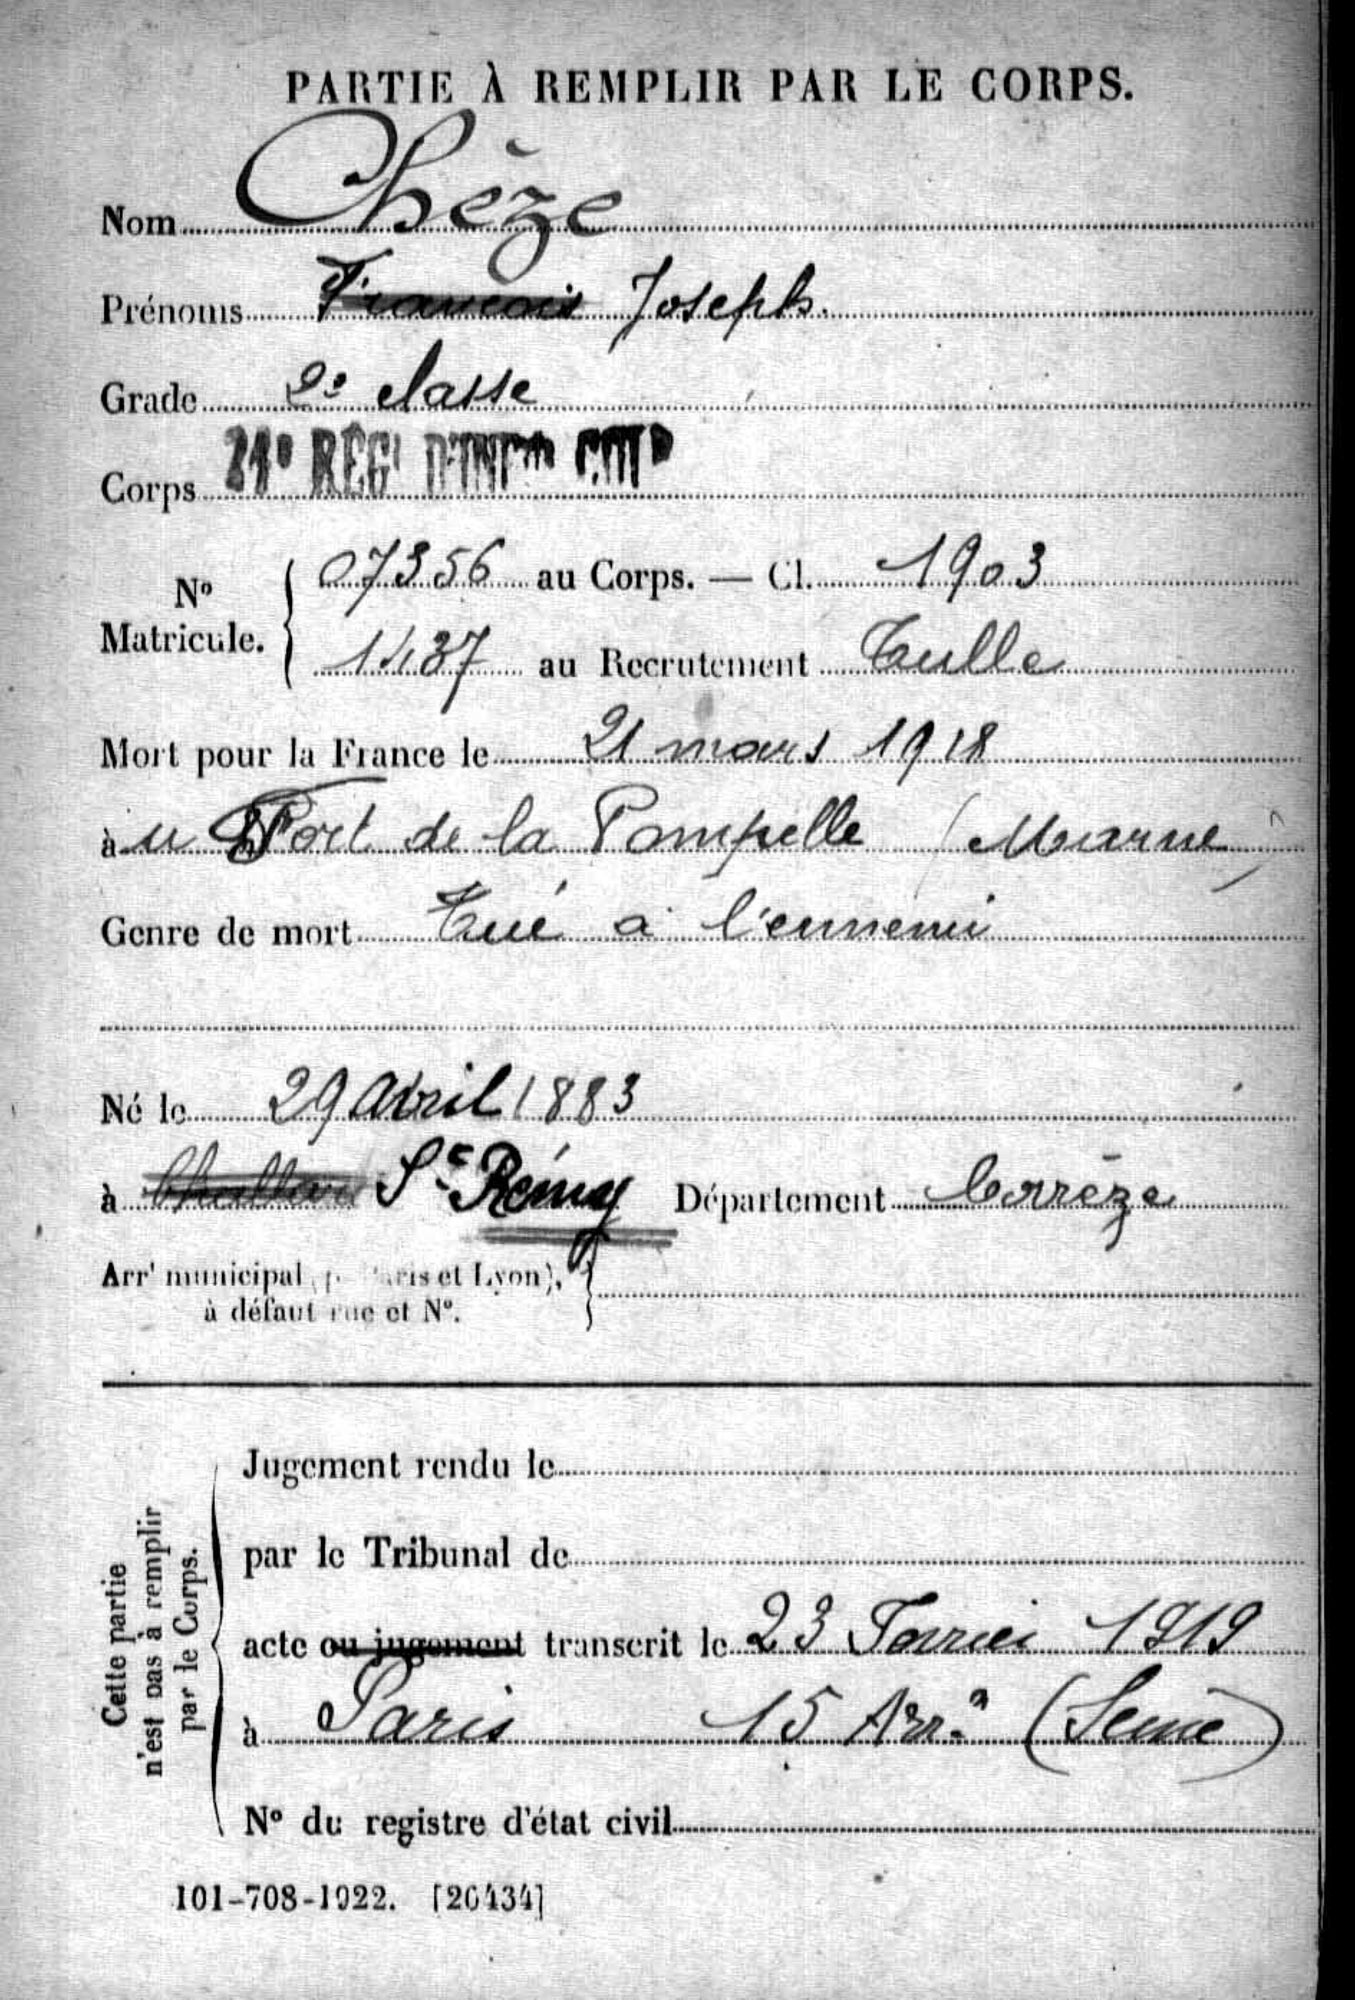 PARTIE À REMPLIR PAR LE CORPS.
Nom Chèze
Prénoms François Joseph.
Grade 2e classe
Corps 21e RÉGt D'INFie COLle
No Matricule. 07356 au Corps. — Cl. 1903
1437 au Recrutement Tulle
Mort pour la France le 21 mars 1918
à u Fort de la Pompelle (Marne)
Genre de mort Tué à l'ennemi
Né le 29 Avril 1883
à St Rémy Département Corrèze
Arrt municipal (pr Paris et Lyon),
à défaut rue et No.
Cette partie
n'est pas à remplir
par le Corps.
Jugement rendu le
par le Tribunal de
acte ou jugement transcrit le 23 Février 1919
à Paris 15 Arr.t (Seine)
No du registre d'état civil
101-708-1922. [26434]